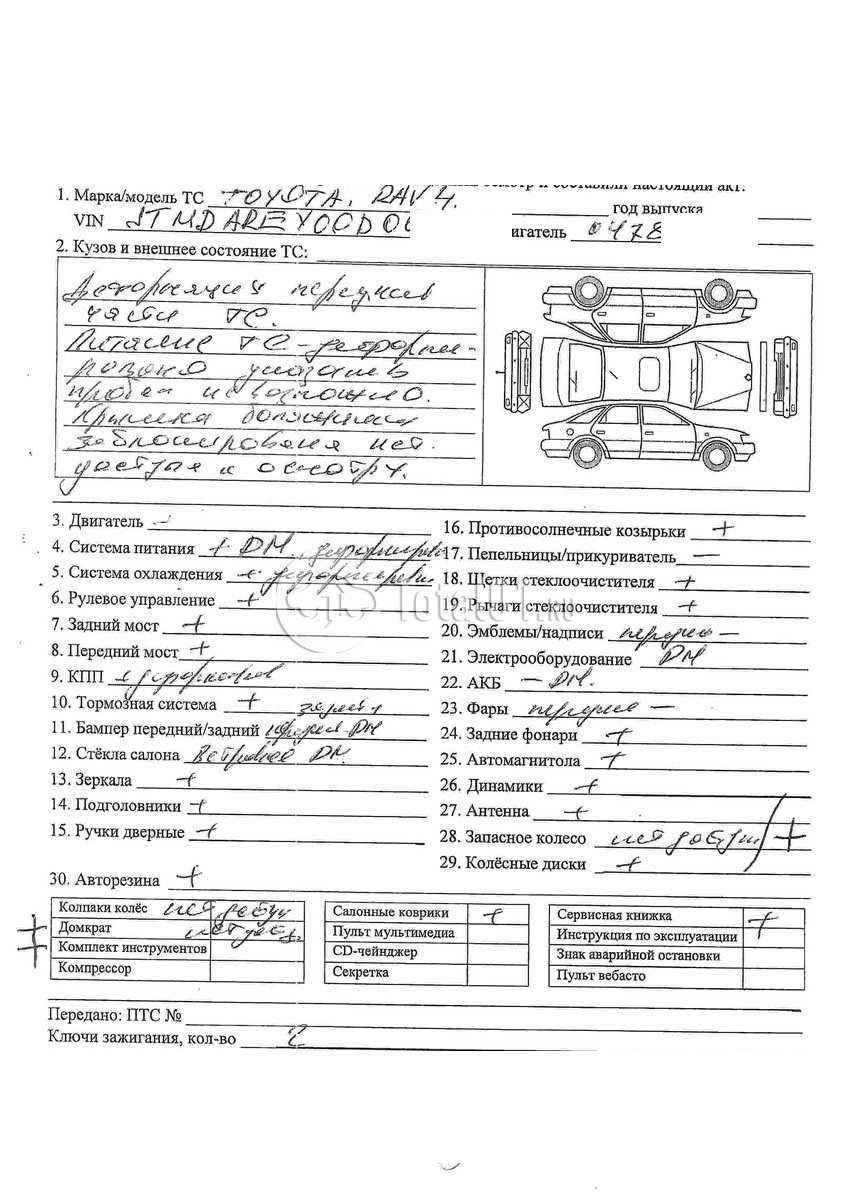 осмотр и составили настоящий акт.
1. Марка/модель ТС TOYOTA. RAV 4.
год выпуска
VIN JTMDAREYOOD0
игатель 0478
2. Кузов и внешнее состояние ТС:
Деформация передней
части ТС.
Питание ТС - деформи-
ровано указание
пробег невозможно.
Крышка багажника
заблокирована нет
доступа к осмотру.
3. Двигатель -
4. Система питания + DM, деформирова
5. Система охлаждения + деформирован
6. Рулевое управление +
7. Задний мост +
8. Передний мост +
9. КПП + деформирован
10. Тормозная система +
11. Бампер передний/задний передний DM
12. Стёкла салона Ветровое DM.
13. Зеркала +
14. Подголовники +
15. Ручки дверные +
16. Противосолнечные козырьки +
17. Пепельницы/прикуриватель —
18. Щетки стеклоочистителя +
19. Рычаги стеклоочистителя +
20. Эмблемы/надписи передн —
21. Электрооборудование DM
22. АКБ — DM.
23. Фары передние —
24. Задние фонари +
25. Автомагнитола +
26. Динамики +
27. Антенна +
28. Запасное колесо нет доступ +
29. Колёсные диски +
30. Авторезина +
Total01.RU
Колпаки колёс нет доступ
+ Домкрат нет дост.
+ Комплект инструментов
Компрессор
Салонные коврики +
Пульт мультимедиа
CD-чейнджер
Секретка
Сервисная книжка +
Инструкция по эксплуатации
Знак аварийной остановки
Пульт вебасто
Передано: ПТС №
Ключи зажигания, кол-во 2